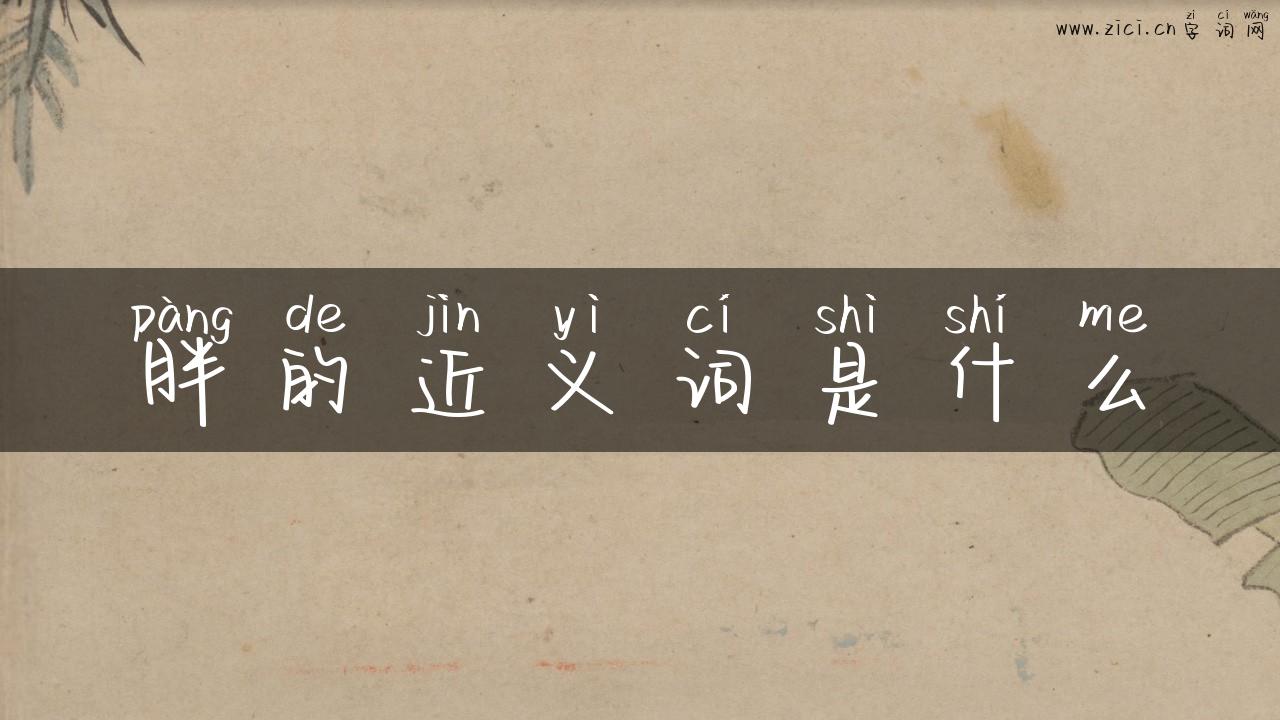 zì cí wǎng
www.zici.cn 字 词 网
pàng de jìn yì cí shì shí me
胖 的 近 义 词 是 什 么